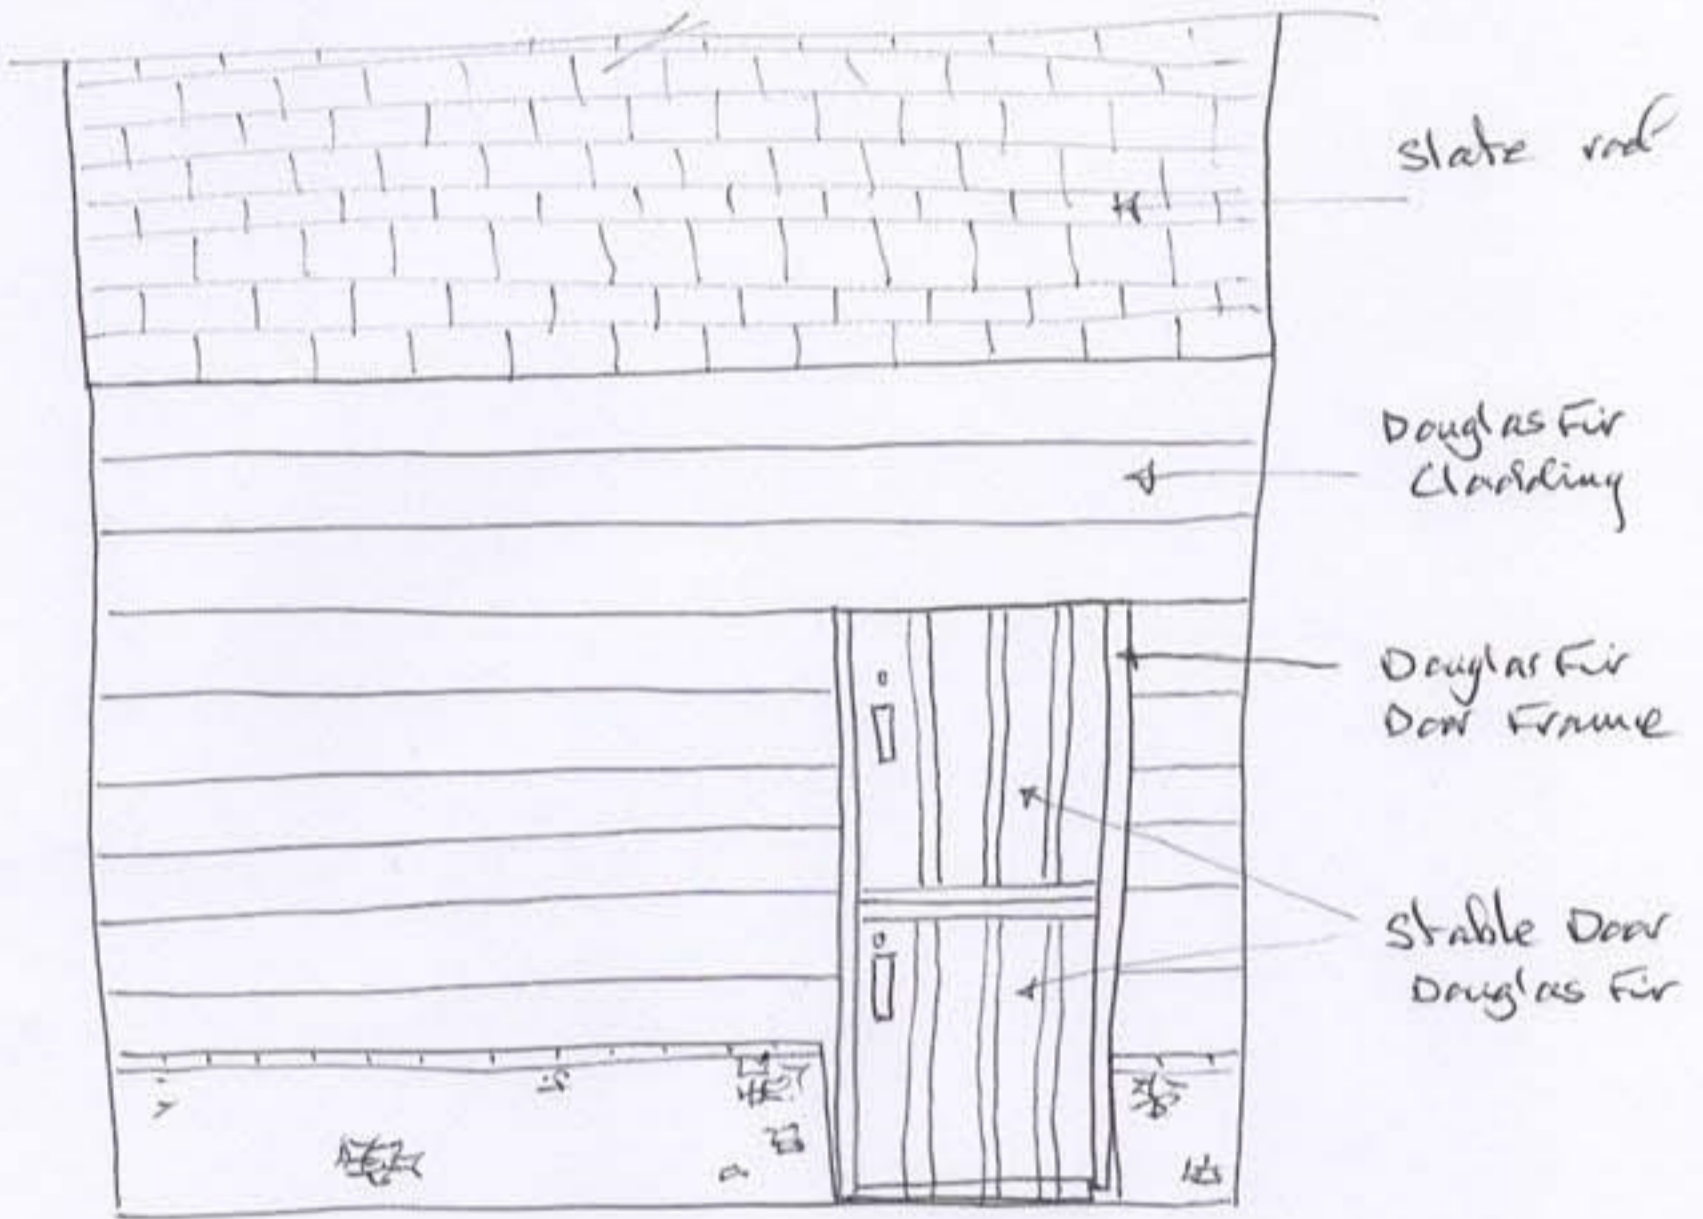 Slate roof
Douglas Fir
Cladding
Douglas Fir
Door Frame
Stable Door
Douglas Fir